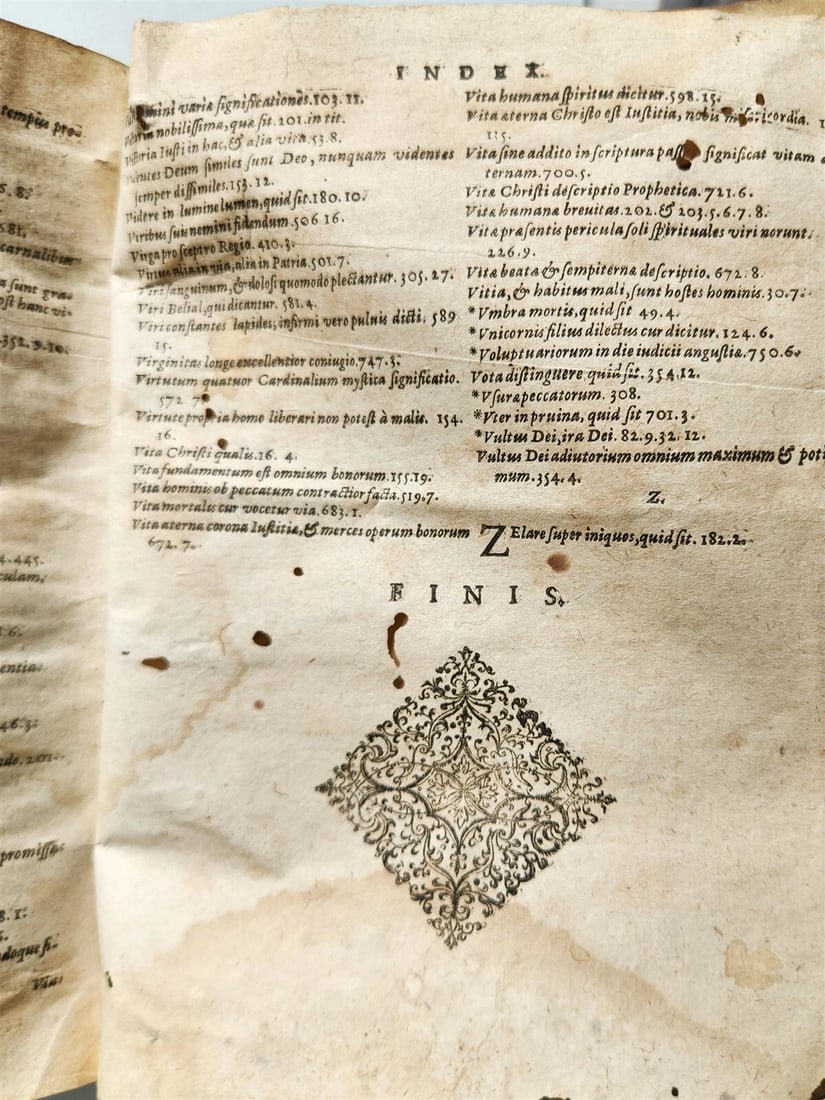 tempus pro-
5.8.
681.
carnalibus
a sunt gra-
ost hanc vi-
352.9.10.
4.445.
culam.
.6.
entia
46.3.
promisse
8.1.
doque si-
Via
INDEX.
mini variæ significationes.103.11.
nobilissima, quæ sit.201.in tit.
Iusti in hac,& alia vita.53.8.
Deum similes sunt Deo, nunquam videntes
semper dissimiles.153.12.
Videre in lumine lumen,quid sit.180.10.
Viribus suis nemini fidendum.506 16.
Virga pro sceptro Regio. 410.3.
Virtus alia in via,alia in Patria.501.7.
Viri sanguinum,& dolosi quomodo plectantur. 305.27.
Viri Belial,qui dicantur. 581.4.
Viri constantes lapides, infirmi vero puluis dicti. 589
15.
Virginitas longe excellentior coniugio.747.3.
Virtutum quatuor Cardinalium mystica significatio.
572 7.
Virtute propria homo liberari non potest à malis. 154.
16.
Vita Christi qualis.16. 4.
Vita fundamentum est omnium bonorum.155.19.
Vita hominis ob peccatum contractior facta.519.7.
Vita mortalis cur vocetur via. 683.1.
Vita æterna corona Iustitiæ,& merces operum bonorum
672.7.
Vita humana spiritus dicitur.598.15.
Vita æterna Christo est Iustitia, nobis misericordia. 1
135.
Vita sine addito in scriptura significat vitam
ternam.700.5.
Vitæ Christi descriptio Prophetica. 721.6.
Vitæ humanæ breuitas.202.& 203.5.6.7.8.
Vitæ præsentis pericula soli spirituales viri norunt.
226.9.
Vitæ beatæ & sempiternæ descriptio. 672.8.
Vitia,& habitus mali,sunt hostes hominis.30.7.
*Vmbra mortis,quid sit 49.4.
*Vnicornis filius dilectus cur dicitur. 124.6.
*Voluptuariorum in die iudicii angustiæ.750.6.
Vota distinguere quid sit. 354.12.
*Vsura peccatorum. 308.
*Vter in pruina, quid sit 701.3.
*Vultus Dei,ira Dei. 82.9.32.12.
Vultus Dei adiutorium omnium maximum & poti
mum.354.4.
Z.
ZElare super iniquos,quid sit. 182.2.
FINIS.